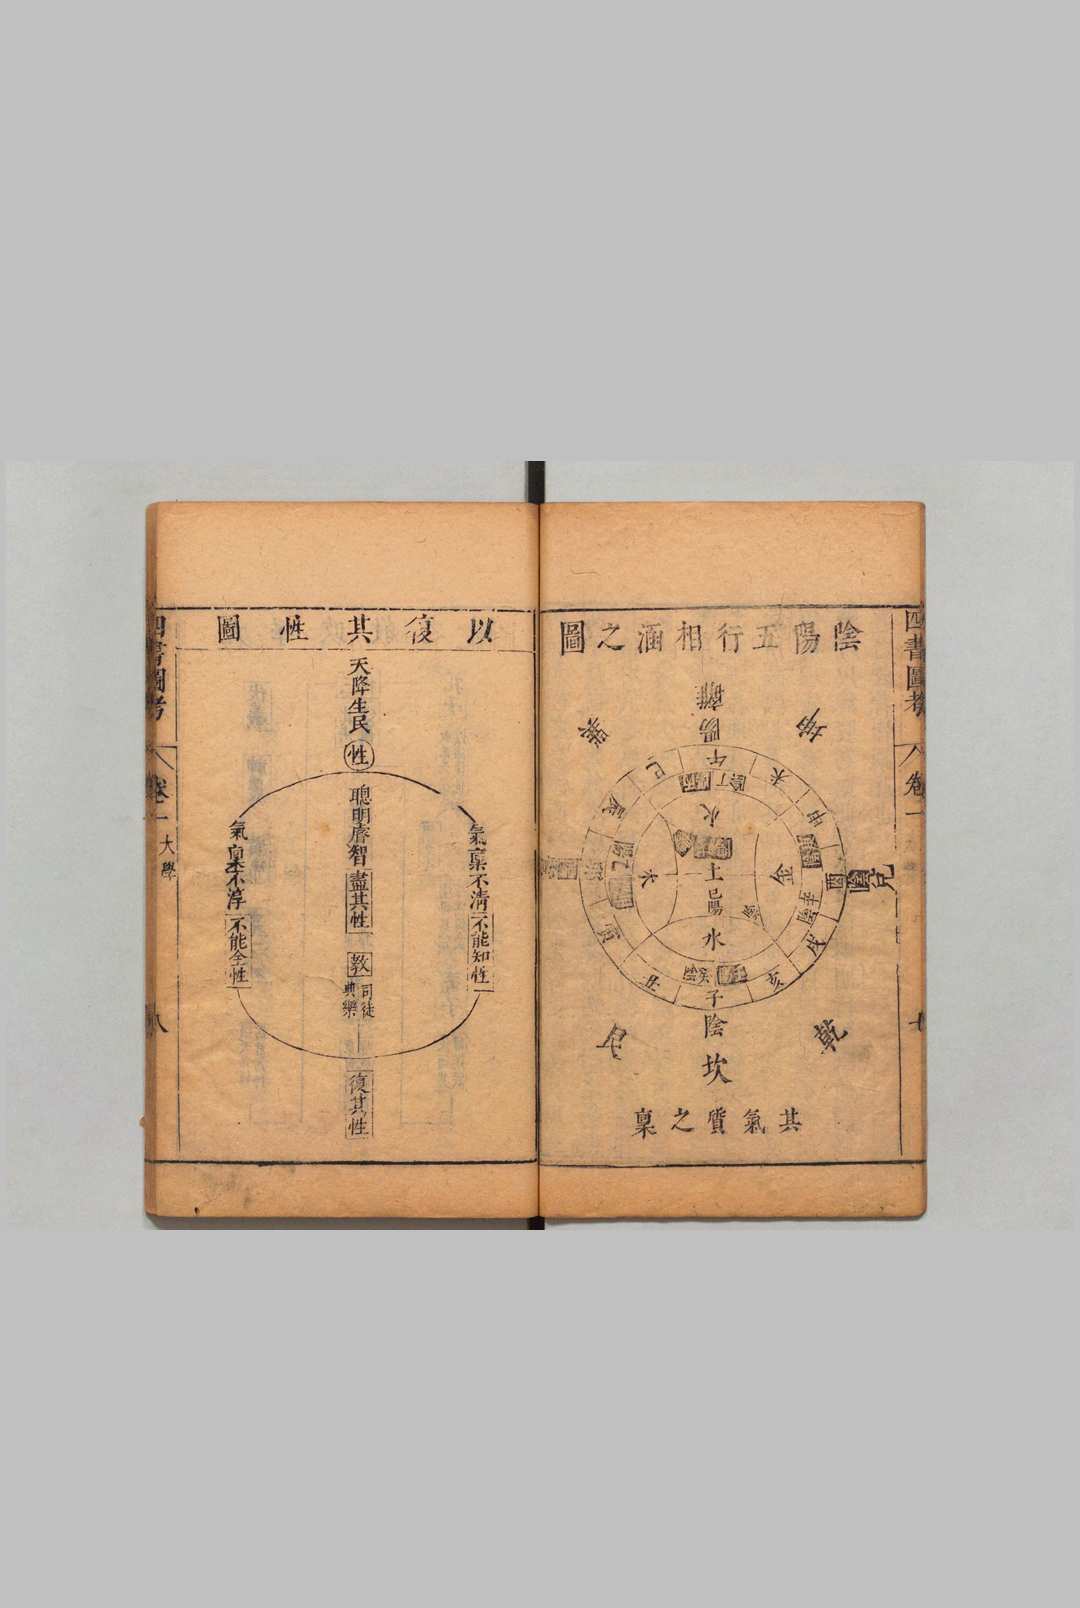 四書圖考
卷一
陰陽五行相涵之圖
離
陽
午
坤
巽
丁
未
巳
申
火
土
己陽
金
木
水
酉
陰
兌
戌
亥
子
丑
陰
坎
乾
艮
其氣質之稟
以復其性圖
天降生民
性
聰明睿智
盡其性
教
司徒
典樂
復其性
氣稟不清
不能知性
氣稟不淳
不能全性
四書圖考
卷一
大學
八